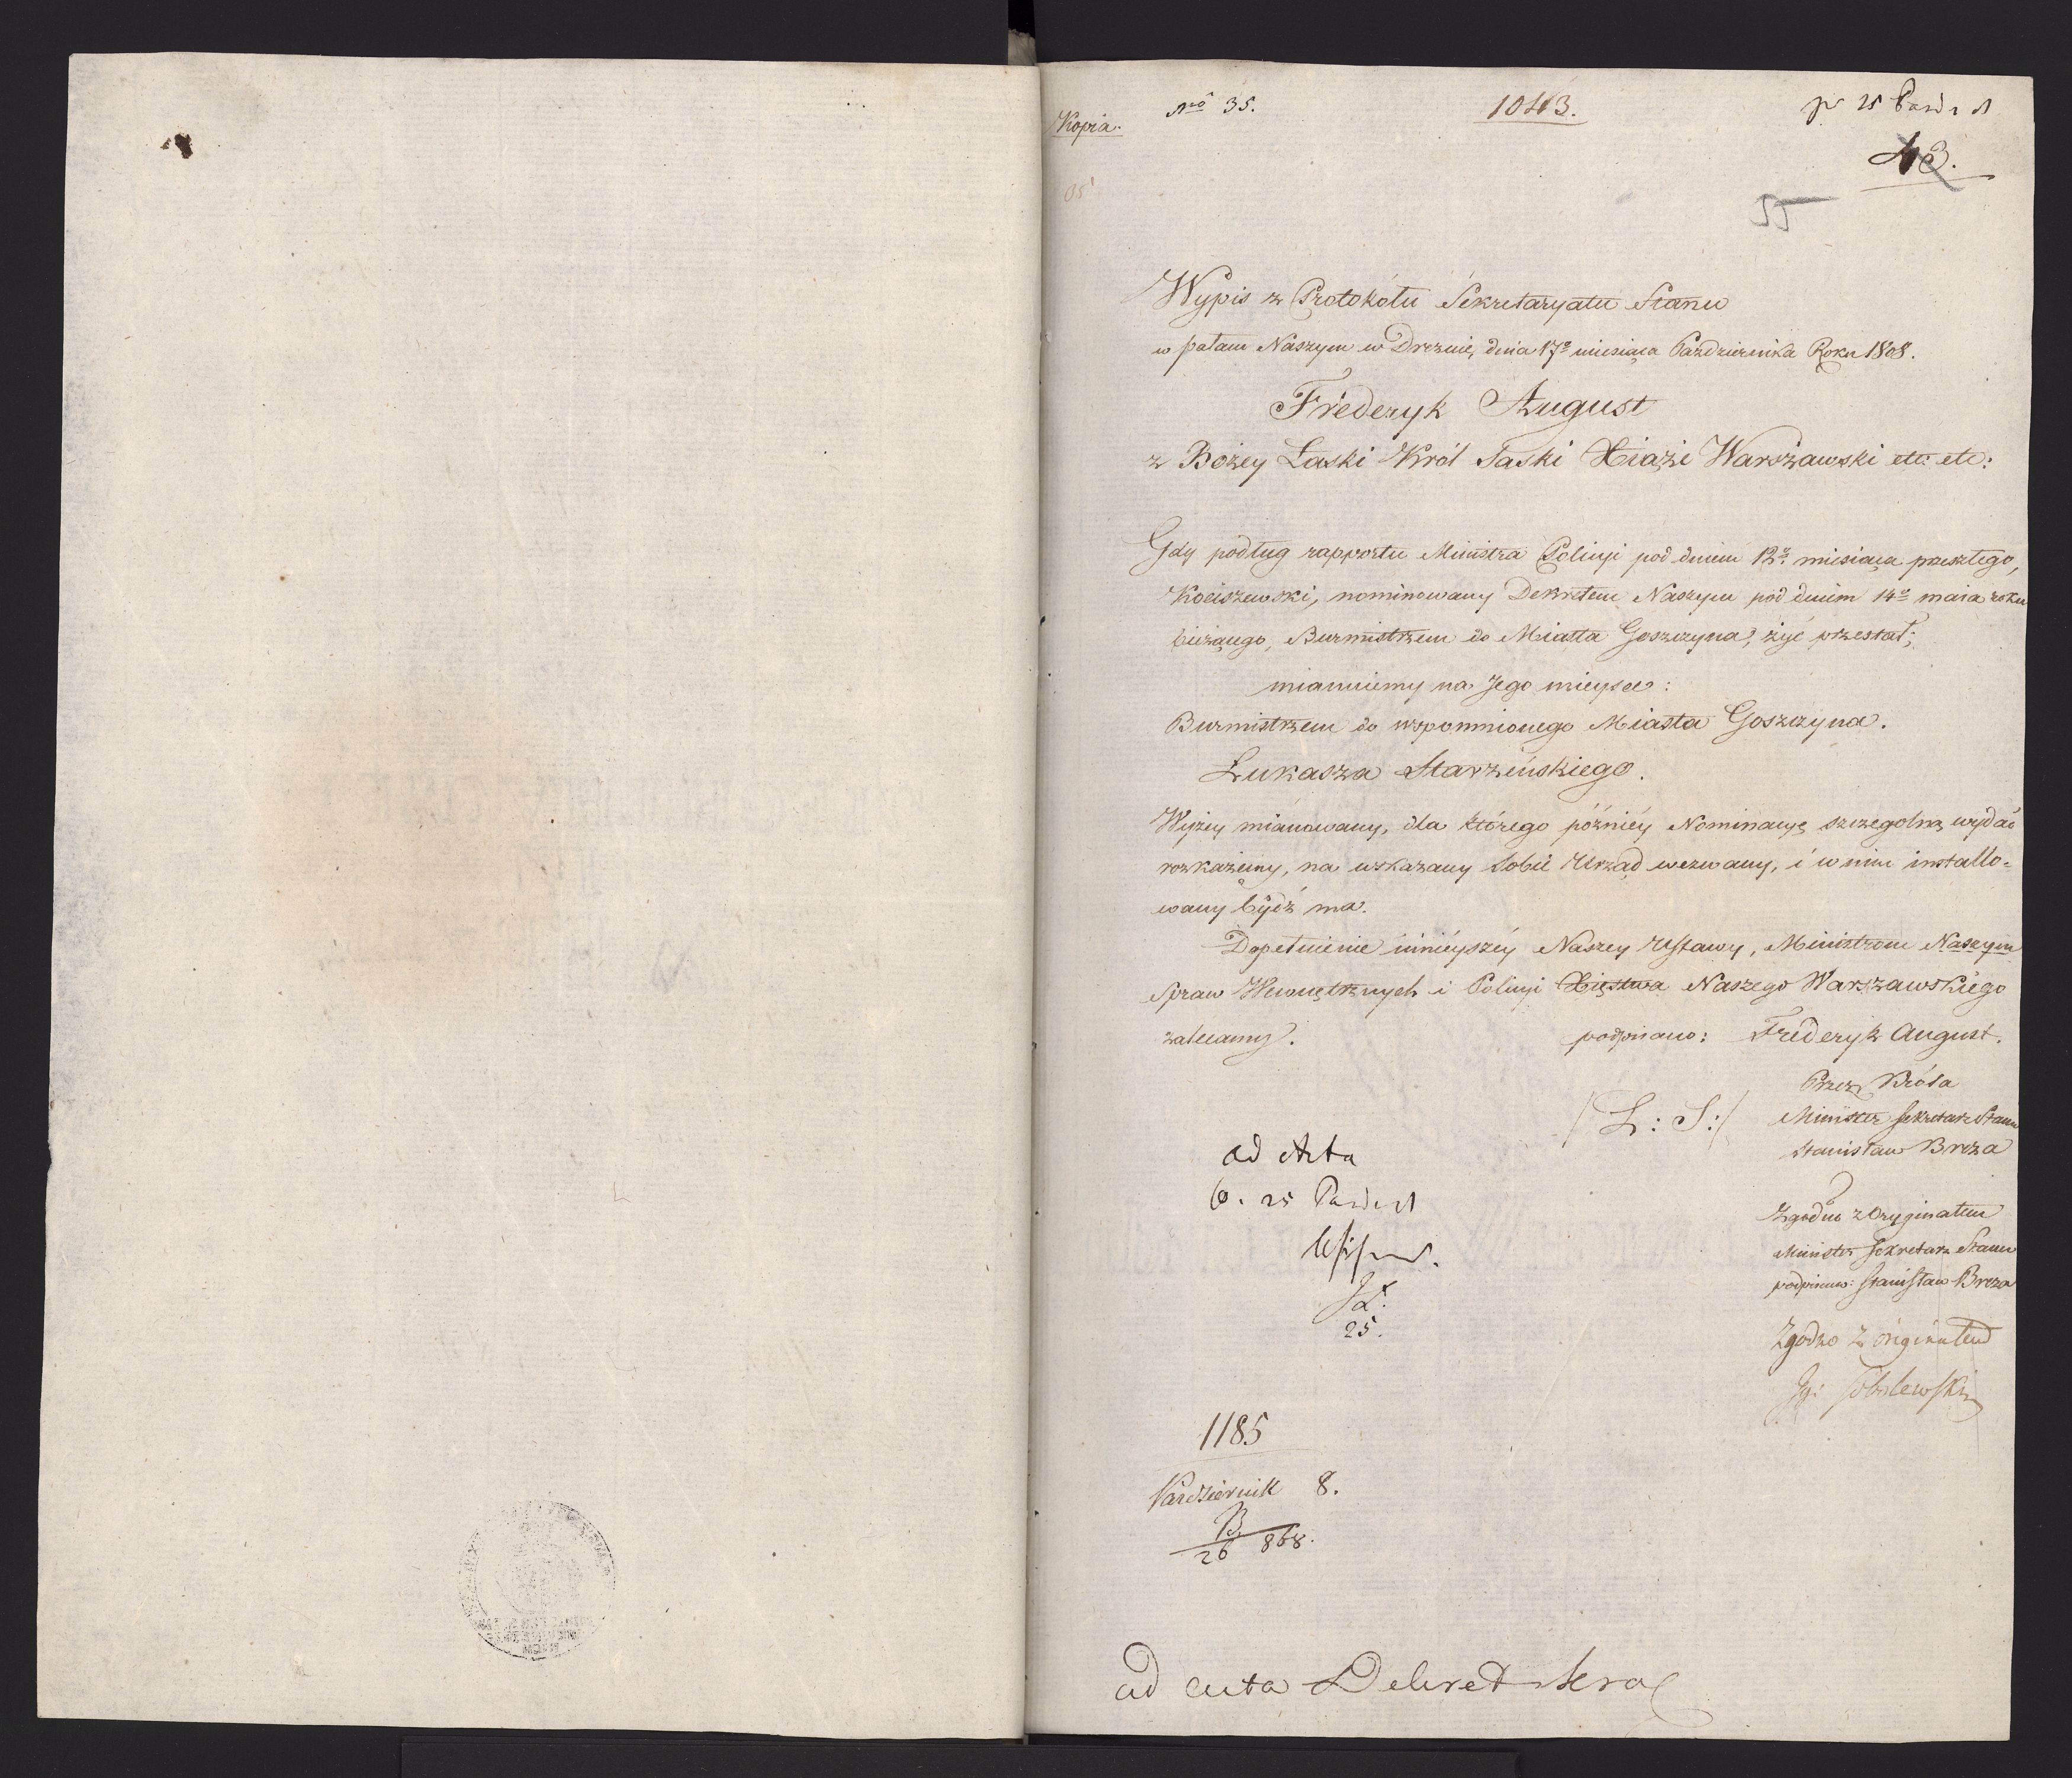 Kopia.
Nro 35.
1043.
pr 25 Paźd
43.
55
Wypis z Protokółu Sekretaryatu Stanu
w pałacu Naszym w Dreznie, dnia 17o miesiąca Października Roku 1808.
Fréderyk August
z Bożey Łaski Król Saski Xiąże Warszawski etc: etc:
Gdy podług rapportu Ministra Policyi pod dniem 12o miesiąca przeszłego,
Kociszewski, nominowany Dekretem Naszym pod dniem 14o maia roku
bieżącego, Burmistrzem do Miasta Goszczyna, żyć przestał;
mianuiemy na Jego mieysce:
Burmistrzem do wspomnionego Miasta Goszczyna.
Łukasza Starzeńskiego.
Wyżey mianowany, dla którego późniéy Nominacyę szczegolną wydać
rozkażemy, na wskazany Sobie Urząd wezwany, i w nim installo-
wany bydź ma.
Dopełnienie ninieyszéy Naszey Ustawy, Ministrom Naszym
Spraw Wewnętrznych i Policyi Xięstwa Naszego Warszawskiego
zalecamy.
podpisano: Fréderyk August.
/L: S:/
Przez Króla
Minister Sekretarz Stanu
Stanisław Breza
Zgodno z Oryginałem
Minister Sekretarz Stanu
podpisano: Stanisław Breza
Zgodno z originałem
Ig: Sobolewski
ad Acta
25 Paźd
25.
1185
Pazdziernik 8.
B
26 868.
ad acta Dekret